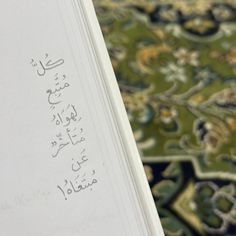 كُلُّ
مُتَّبِعٍ
لِهَوَاهُ
مُتَأَخِّرٌ
عَنْ
مُبْتَغَاهُ!